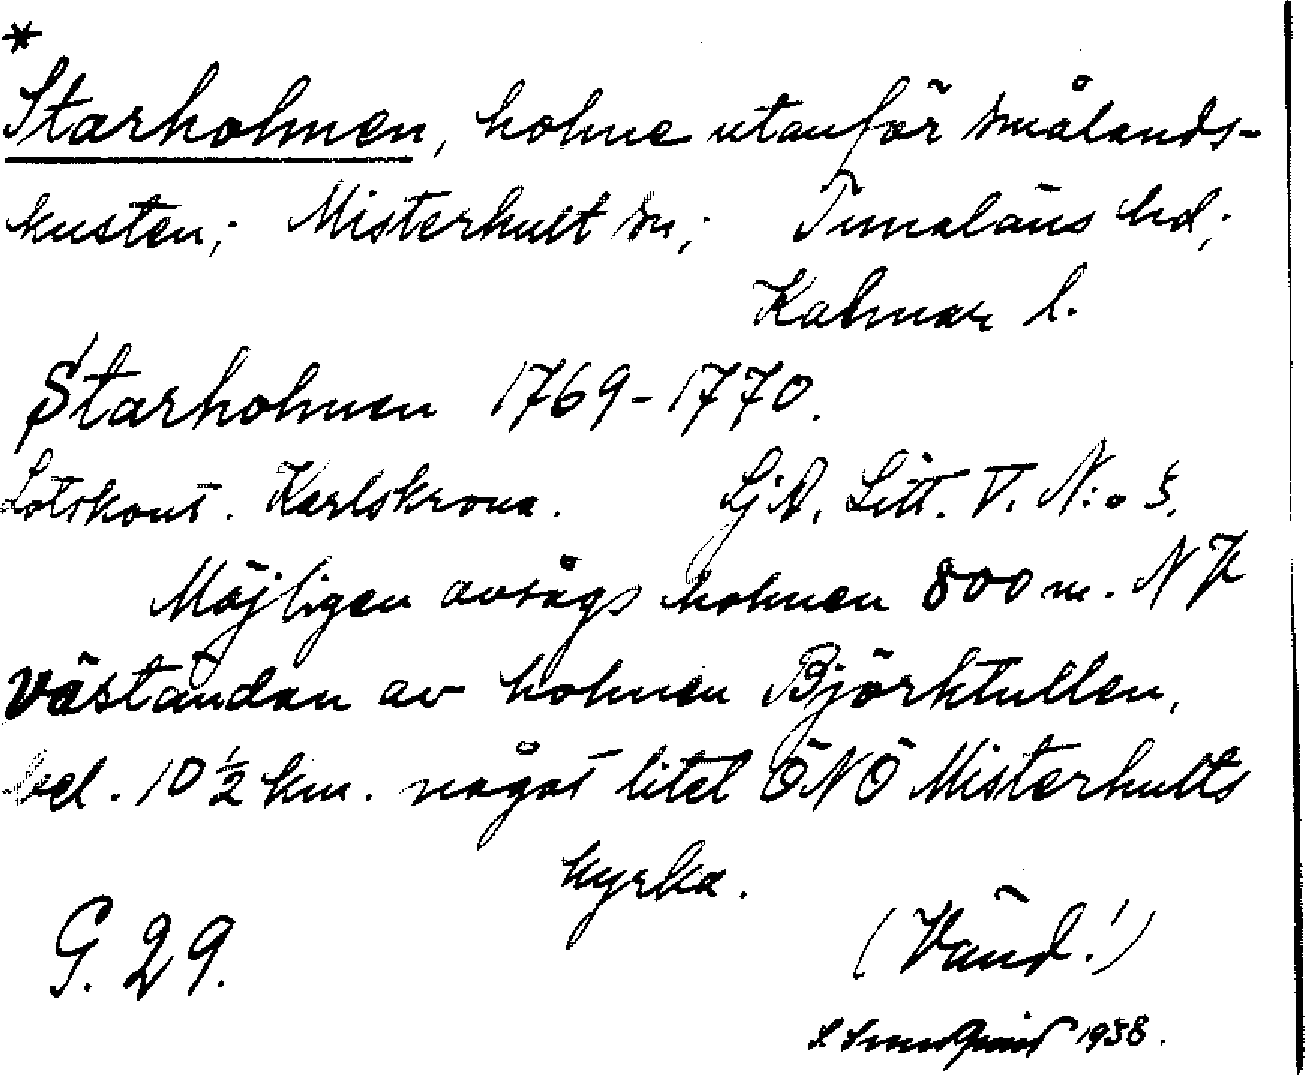 *
Starholmen, holme utanför Smålands-
kusten; Misterhult sn; Tunaläns hd;
Kalmar l.
Starholmen 1769-1770.
Lotskont. Karlskrona. SjA. Litt. V. N:o 3.
Möjligen avsågs holmen 800 m.
västandan av holmen Björktullen,
bel. 10 ½ km. något litet ÖNÖ Misterhults
kyrka.
G. 29. (Vänd!)
1938.